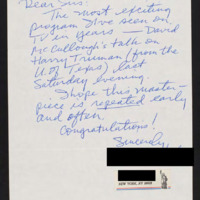 Dear Sirs,
The most exciting
program I've seen on
TV in years — David
McCullough's talk on
Harry Truman (from the
U. of Texas) last
Saturday evening.
I hope this master-
piece is repeated early
and often.
Congratulations!
Sincerely,
NEW YORK, NY